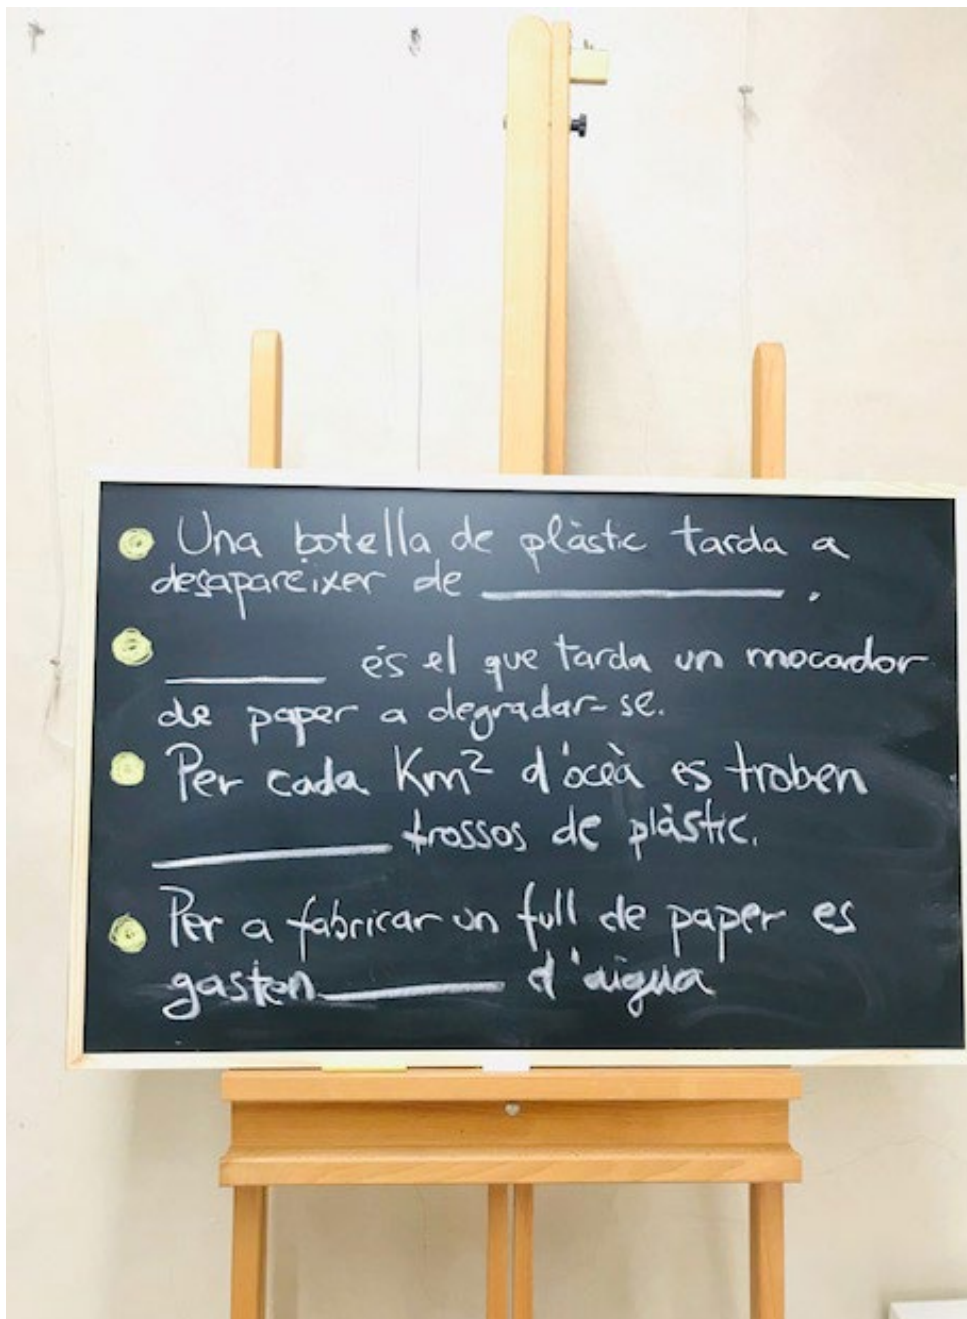 Una botella de plàstic tarda a
desaparèixer de __________.
______ és el que tarda un mocador
de paper a degradar-se.
Per cada Km² d'oceà es troben
________ trossos de plàstic.
Per a fabricar un full de paper es
gasten ______ d'aigua